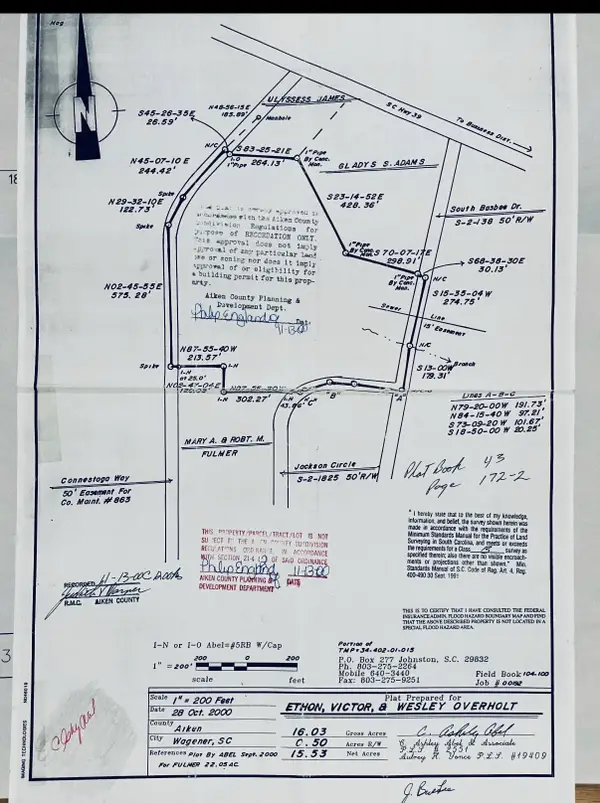 Mag
N
18
ULYSSESS JAMES
N48-56-15E
185.89'
Manhole
S45-26-35E
26.59'
N/C
S 83-25-21E
264.13'
I-O
1" Pipe
1" Pipe
By Conc.
Mon.
SC Hwy 39
To Business Dist.
GLADYS S. ADAMS
N45-07-10 E
244.42'
N29-32-10E
122.73'
Spike
Spike
S23-14-52E
428.36'
South Busbee Dr.
S-2-138 50'R/W
accordance with the Aiken County
Subdivision Regulations for
purpose of RECORDATION ONLY.
This approval does not imply
approval of any particular land
use or zoning nor does it imply
approval of or eligibility for
a building permit for this prop-
erty.
Aiken County Planning &
Development Dept.
1" Pipe
By Conc.
Mon.
S 70-07-17E
298.91'
1" Pipe
By Conc.
Mon.
S68-38-30E
30.13'
N/C
S15-35-04W
274.75'
N02-45-55E
575.28'
Sewer Line
15' Easement
N/C
Branch
S13-00W
179.31'
N87-55-40W
213.57'
Spike
I-N
I-N
at 25.0'
N02-47-04E
I-N
302.27'
"C"
"B"
"A"
Lines A-B-C
N79-20-00W 191.73'
N84-15-40W 97.21'
S73-09-20W 101.67'
S18-50-00W 20.25'
MARY A. & ROBT. M.
FULMER
Jackson Circle
S-2-1825 50'R/W
Connestoga Way
50' Easement For
Co. Maint. # 863
Plat Book 43
Page 172-2
" I hereby state that to the best of my knowledge,
information, and belief, the survey shown herein was
made in accordance with the requirements of the
Minimum Standards Manual for the Practice of Land
Surveying in South Carolina, and meets or exceeds
the requirements for a Class B survey as
specified therein; also there are no visible encroach-
ments or projections other than shown." Min.
Standards Manual of S.C. Code of Reg. Art. 4, Reg.
400-490 30 Sept. 1991
THIS PROPERTY/PARCEL/TRACT/LOT IS NOT
SUBJECT TO THE AIKEN COUNTY SUBDIVISION
REGULATIONS
AIKEN COUNTY PLANNING &
DEVELOPMENT DEPARTMENT
11-13-00
DATE
RECORDED 11-13-00
R.M.C. AIKEN COUNTY
THIS IS TO CERTIFY THAT I HAVE CONSULTED THE FEDERAL
INSURANCE ADMIN. FLOOD HAZARD BOUNDARY MAP AND FIND
THAT THE ABOVE DESCRIBED PROPERTY IS NOT LOCATED IN A
SPECIAL FLOOD HAZARD AREA.
I-N or I-O Abel=#5RB W/Cap
1" = 200'
200 0 200
scale feet
Portion of
TMP# 34-402-01-015
P.O. Box 277 Johnston, S.C. 29832
Ph. 803-275-2264
Mobile 640-3440
Fax: 803-275-9251
Field Book 104-100
Job # 0082
Scale 1" = 200 Feet
Date 28 Oct. 2000
County Aiken
City Wagener, SC
References Plat By ABEL Sept. 2000
For FULMER 22.05 AC.
Plat Prepared for
ETHON, VICTOR, & WESLEY OVERHOLT
16.03 Gross Acres
0.50 Acres R/W
15.53 Net Acres
C. Ashley Abel & Associate
P.L.S.
Aubrey R. Yonce P.L.S. #19409
3
IMAGING TECHNOLOGIES